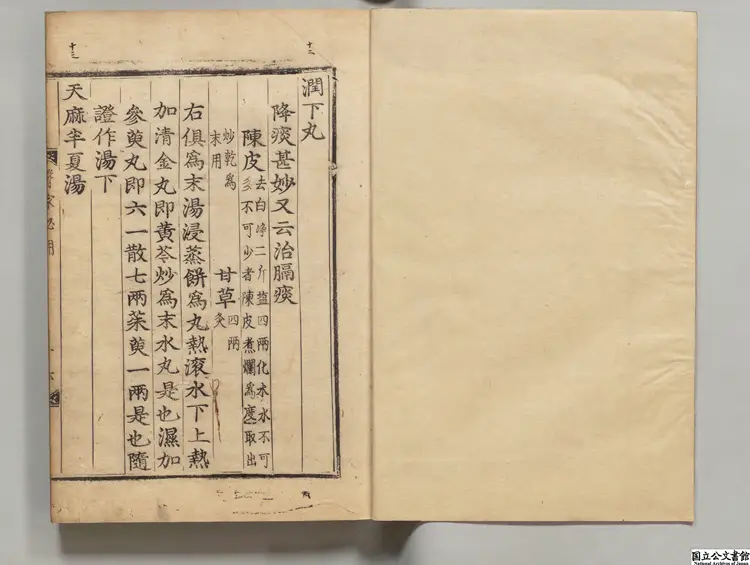 十三
潤下丸
降痰甚妙又云治膈痰
陳皮去白净二斤盐四兩化水水不可
多不可少者陳皮煮爛爲度取出
炒乾爲
末用
甘草四兩
炙
右俱爲末湯浸蒸餅爲丸熱滚水下上熱
加清金丸即黄芩炒爲末水丸是也濕加
參萸丸即六一散七兩茱萸一兩是也隨
證作湯下
天麻半夏湯
十三
国立公文書館
National Archives of Japan